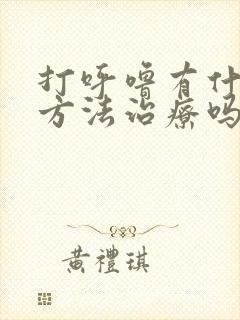 打呼噜有什
方法治療吗
黃禮琪